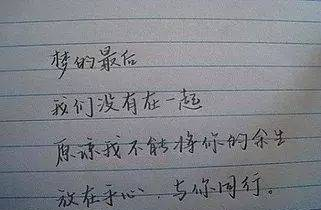 梦的最后
我们没有在一起
原谅我不能将你的余生
放在手心，与你同行。